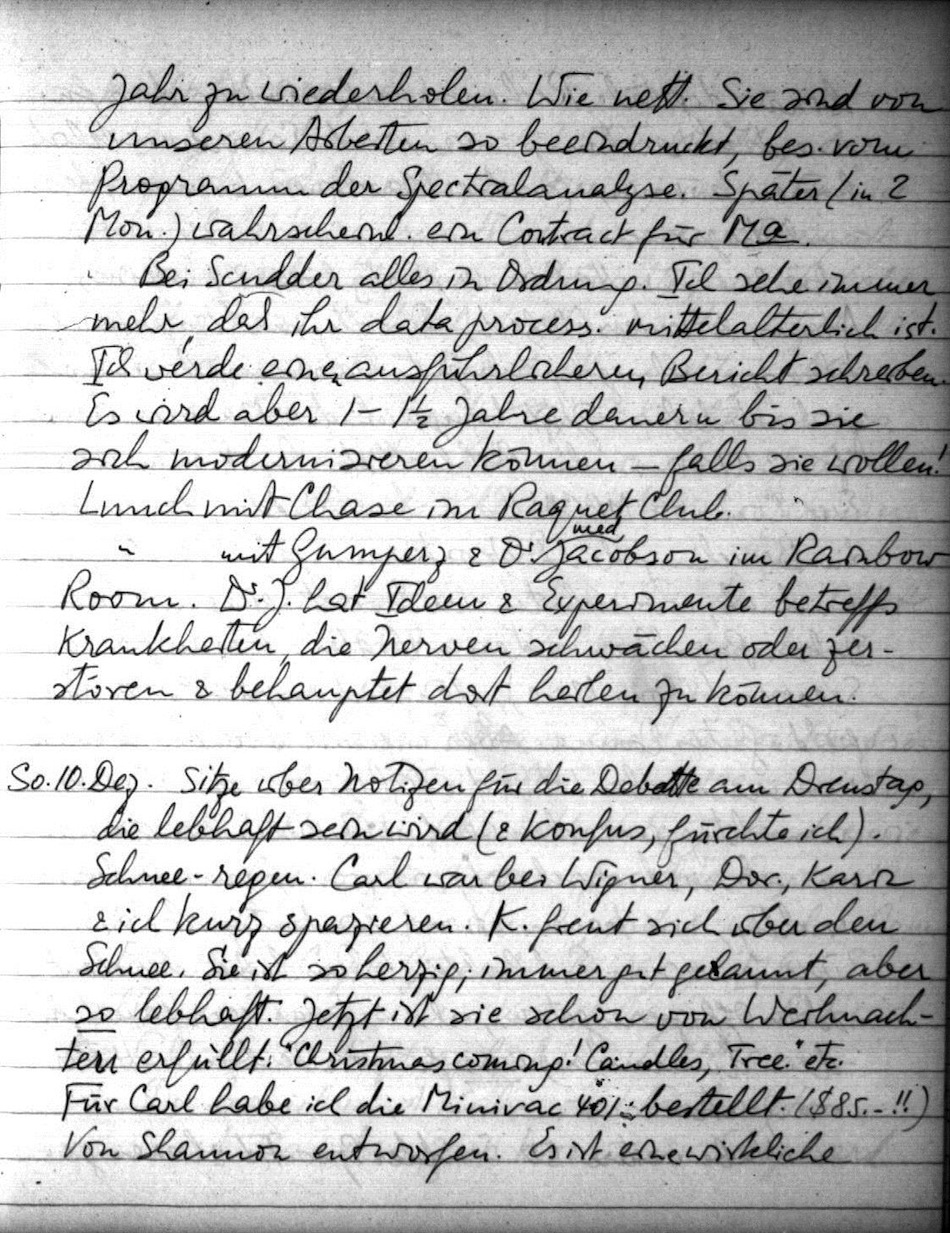 Jahr zu wiederholen. Wie nett. Sie sind von
unseren Arbeiten so beeindruckt, bes. vom
Programm der Spectralanalyse. Später (in 2
Mon.) wahrscheinl. ein Contract für Ma.
Bei Scudder alles in Ordnung. Ich sehe immer
mehr, daß ihr data process. mittelalterlich ist.
Ich werde einen ausführlicheren Bericht schreiben.
Es wird aber 1 - 1½ Jahre dauern bis sie
sich modernisieren können – falls sie wollen!
Lunch mit Chase im Raquet Club.
" mit Gumperz & Dr. med Jacobson im Rainbow
Room. Dr. J. hat Ideen & Experimente betreffs
Krankheiten, die Nerven schwächen oder zer-
stören & behauptet dort heilen zu können.
So. 10. Dez. Sitze über Notizen für die Debatte am Dienstag,
die lebhaft sein wird (& konfus, fürchte ich).
Schnee-regen. Carl war bei Wigner, Dor., Karin
& ich kurz spazieren. K. freut sich über den
Schnee. Sie ist so herzig; immer gut gelaunt, aber
so lebhaft. Jetzt ist sie schon von Weihnach-
ten erfüllt: "Christmas coming! Candles, Tree" etc.
Für Carl habe ich die Minivac 601 bestellt. ($85.- !!)
Von Shannon entworfen. Es ist eine wirkliche